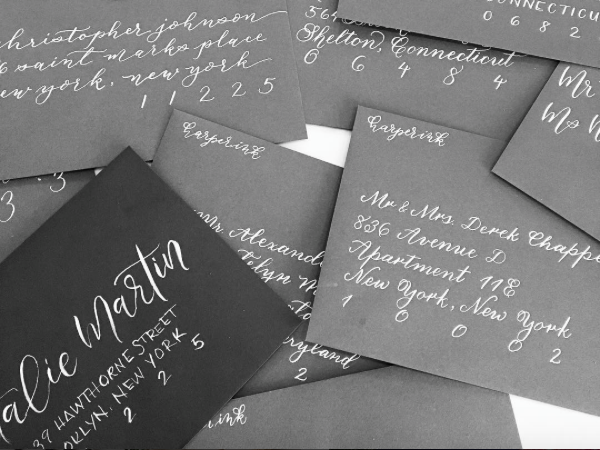 christopher johnson
saint marks place
new york, new york
1 1 2 2 5
564
Shelton, Connecticut
0 6 4 8 4
CONNECTICUT
0 6 8 2
Mr
Ms
3 . 3
harperink
Mr Alexand
telyn M
ryland
2
harperink
Mr & Mrs. Derek Chappe
836 Avenue D
Apartment 11E
New York, New York
1 0 0 0 2
alie Martin
39 HAWTHORNE STREET
OKLYN, NEW YORK
2 2 5
ink